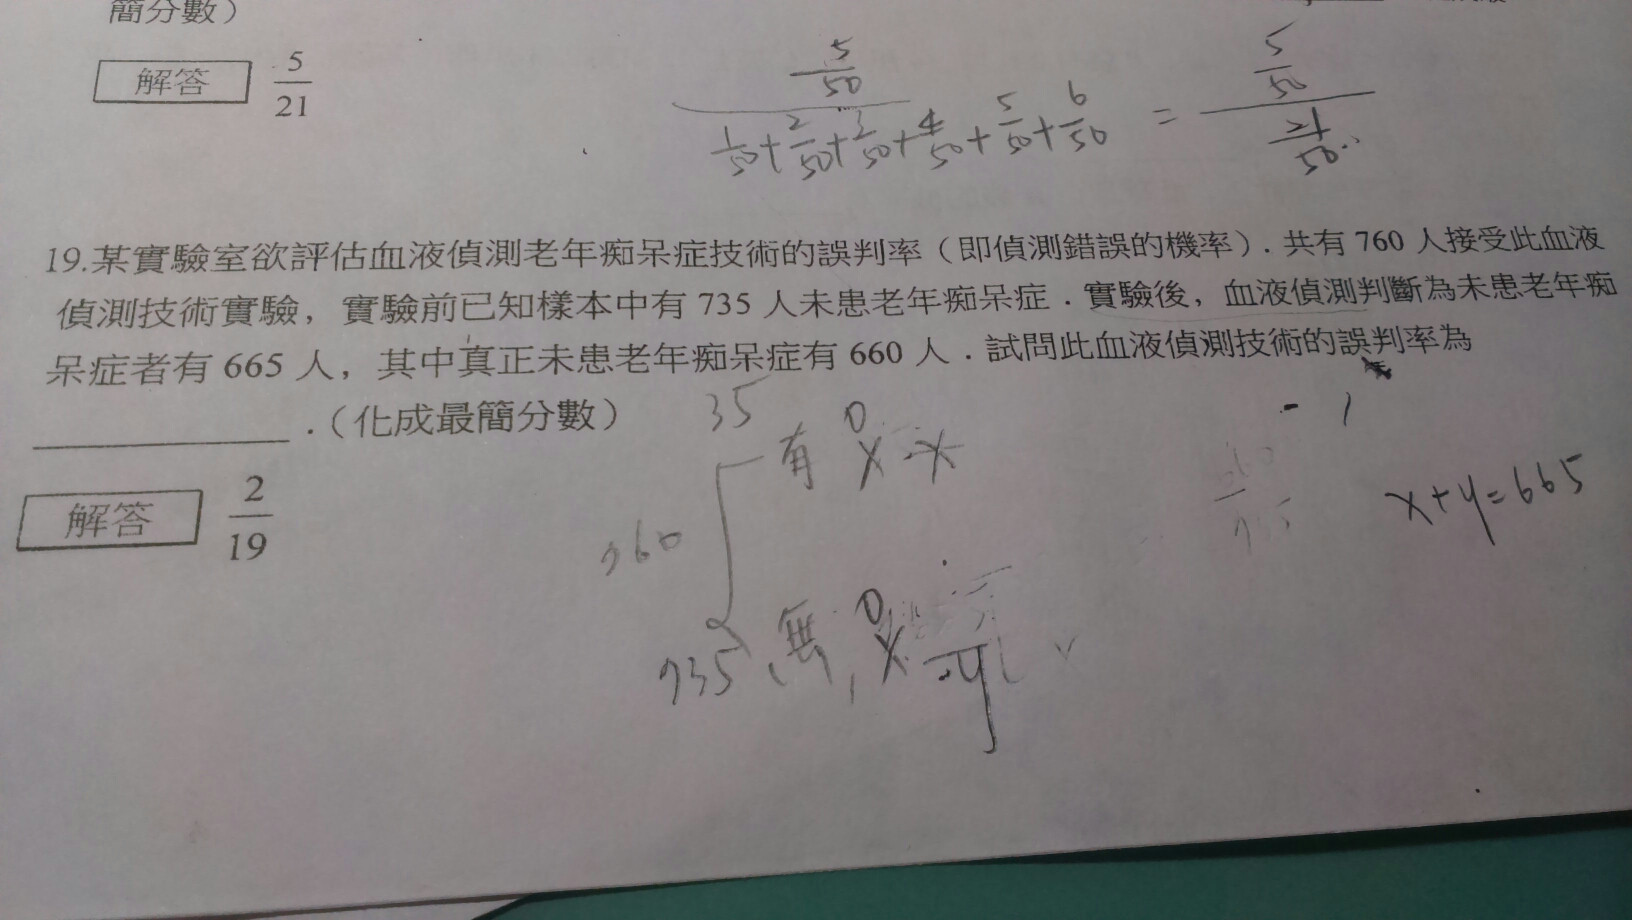 簡分數）
解答 5/21
5/50
1/50+2/50+3/50+4/50+5/50+6/50 = 5/50 / 21/50
19.某實驗室欲評估血液偵測老年痴呆症技術的誤判率（即偵測錯誤的機率）. 共有 760 人接受此血液
偵測技術實驗，實驗前已知樣本中有 735 人未患老年痴呆症．實驗後，血液偵測判斷為未患老年痴
呆症者有 665 人，其中真正未患老年痴呆症有 660 人．試問此血液偵測技術的誤判率為
.（化成最簡分數）
35
有
x+y=665
解答 2/19
760
735 無